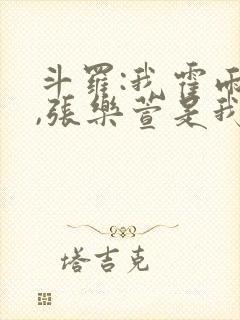 斗羅:我霍雨
,張樂萱是我
塔吉克